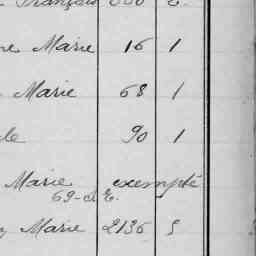 François
ne Marie 16 1
Marie 68 1
le 90 1
Marie exempté
69-
y Marie 2136 5